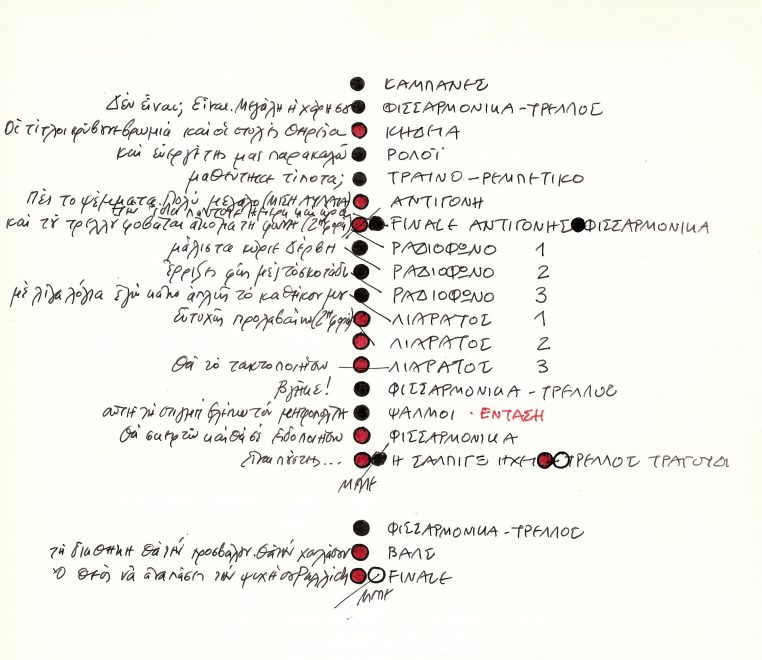 ΚΑΜΠΑΝΕΣ
Δὲν εἶναι; Εἶναι. Μεγάλη ἡ χάρη σου ΦΙΣΣΑΡΜΟΝΙΚΑ - ΤΡΕΛΛΟΣ
Οἱ τίτλοι καὶ οἱ στολὲς ΚΗΔΕΙΑ
καὶ εὐεργέτης μας παρακαλῶ ΡΟΛΟΪ
μαθεύτηκε τίποτα; ΤΡΑΙΝΟ - ΡΕΜΠΕΤΙΚΟ
Πὲς τὸ ψέμματα. Πολὺ μεγάλο ΑΝΤΙΓΟΝΗ
καὶ τὸν τρελλὸ φοβᾶται ἀκόμα τὴ φωνὴ (2ⁿ φορά) FINALE ΑΝΤΙΓΟΝΗΣ ΦΙΣΣΑΡΜΟΝΙΚΑ
μάλιστα κύριε Δέρβη ΡΑΔΙΟΦΩΝΟ 1
ἔρριξες φῶς μὲς τὸ σκοτάδι ΡΑΔΙΟΦΩΝΟ 2
μὲ λίγα λόγια ἐγὼ κάνω ἁπλῶς τὸ καθῆκον μου ΡΑΔΙΟΦΩΝΟ 3
Εὐτυχῶς προλαβαίνω (2ⁿ φορά) ΛΙΑΡΑΤΟΣ 1
ΛΙΑΡΑΤΟΣ 2
Θὰ τὸ τακτοποιήσω ΛΙΑΡΑΤΟΣ 3
βγῆκε! ΦΙΣΣΑΡΜΟΝΙΚΑ - ΤΡΕΛΛΟΣ
αὐτὴ τὴ στιγμὴ βλέπω τὸν μητροπολίτη ΨΑΛΜΟΙ · ΕΝΤΑΣΗ
θὰ σκεφτῶ καὶ θὰ σὲ εἰδοποιήσω ΦΙΣΣΑΡΜΟΝΙΚΑ
εἶναι ... Η ΣΑΛΠΙΓΞ ΗΧΕΙ ΤΡΕΛΛΟΣ ΤΡΑΓΟΥΔΙ
ΦΙΣΣΑΡΜΟΝΙΚΑ - ΤΡΕΛΛΟΣ
τὴ διαθήκη θὰ τὴν προσβάλουν. θὰ τὴν χαλάσουν ΒΑΛΣ
Ὁ Θεὸς νὰ ἀναπαύσει τὴν ψυχὴ FINALE